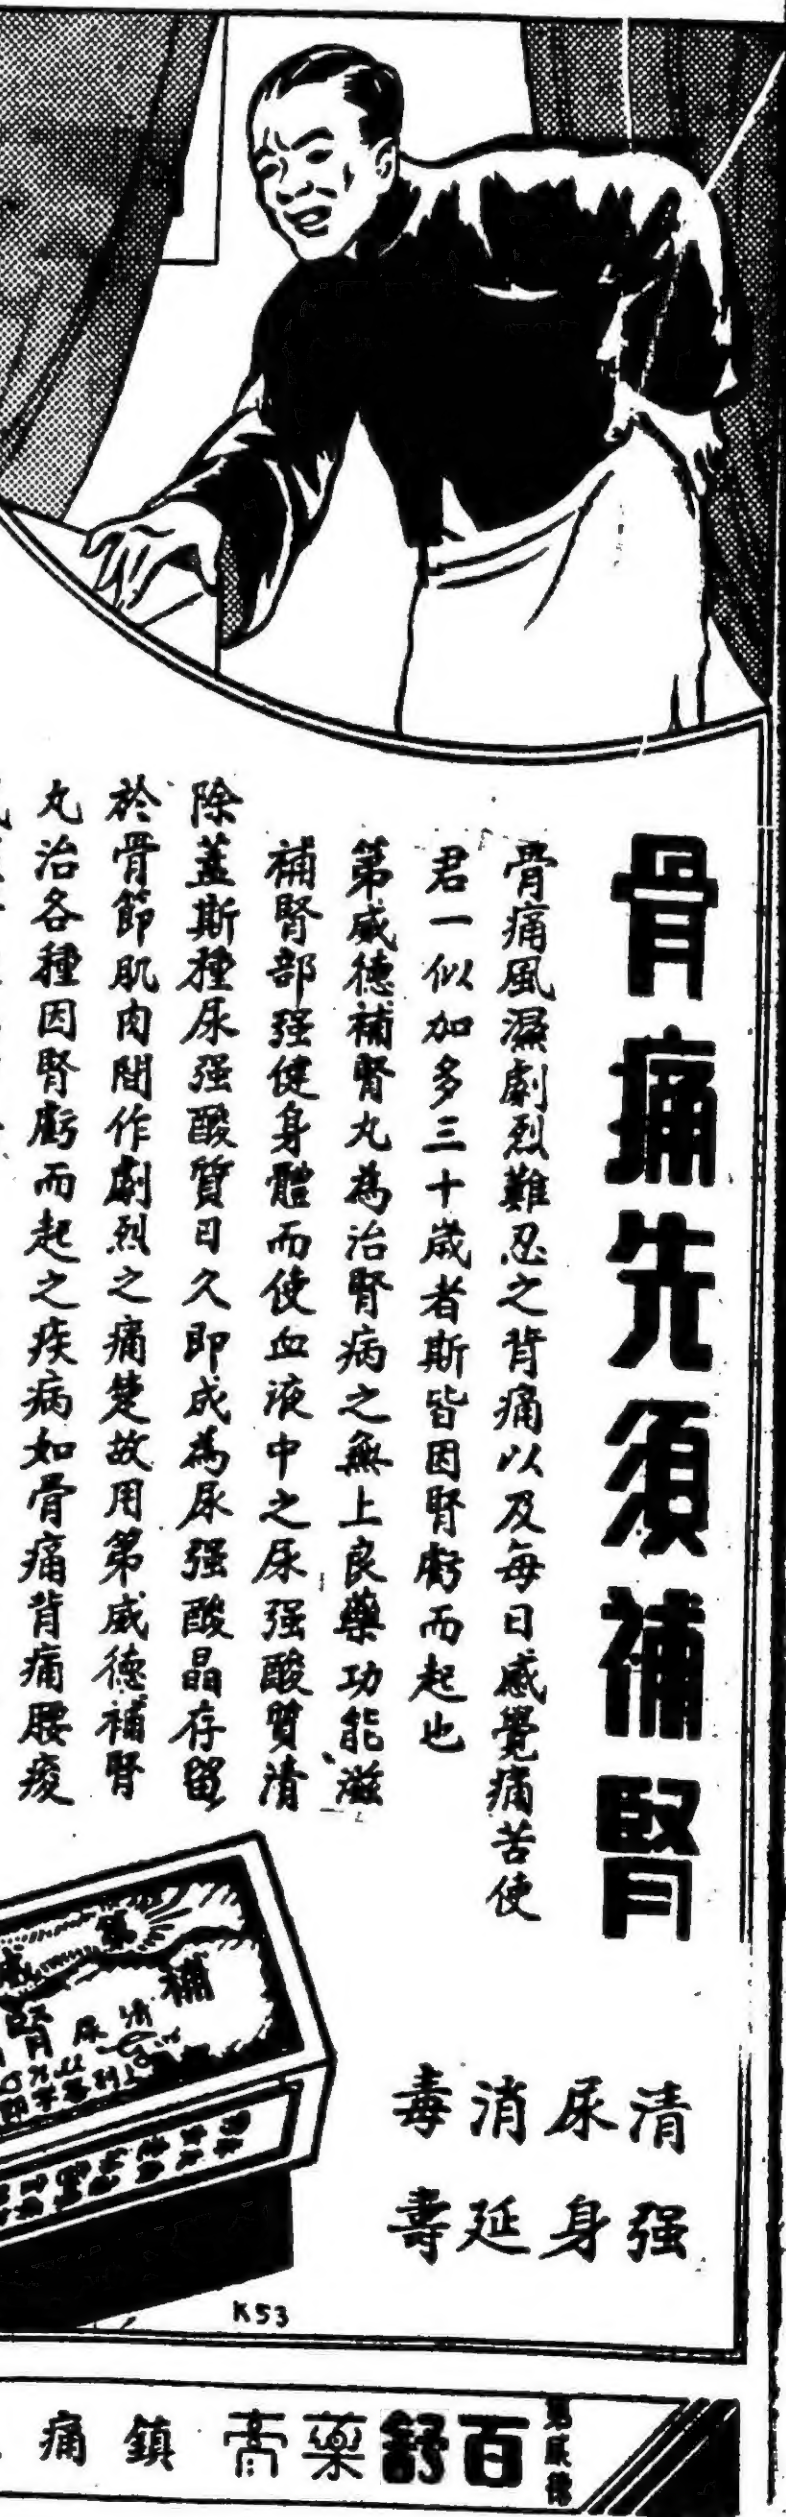 骨痛先須補腎
骨痛風濕劇烈難忍之背痛以及每日感覺痛苦使
君一似加多三十歲者斯皆因腎虧而起也
第威德補腎丸為治腎病之無上良藥功能滋
補腎部强健身體而使血液中之尿强酸質清
除蓋斯種尿强酸質日久即成為尿强酸晶存留
於骨節肌肉間作劇烈之痛楚故用第威德補腎
丸治各種因腎虧而起之疾病如骨痛背痛腰痠
清尿消毒
强身延壽
補
腎
清尿
K53
第威德
百舒藥膏
鎮痛